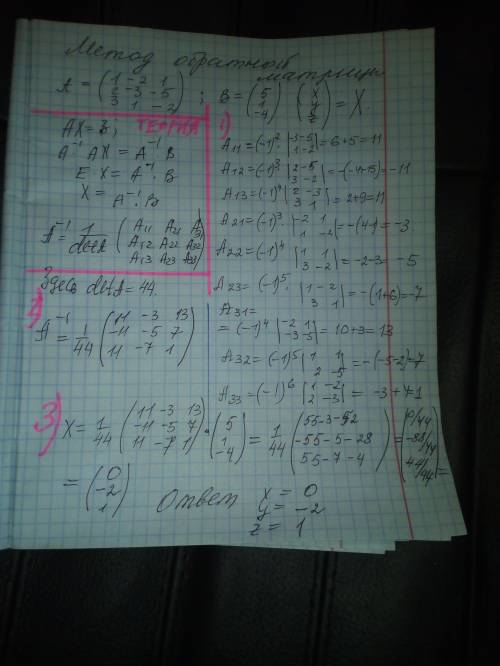 Метод обратной матрицы
A = (1 -2 1; 2 -3 -5; 3 1 -2); B = (5; 1; -4) (x; y; z) = X.
AX = B; ТЕОРИЯ
A⁻¹ AX = A⁻¹ · B
E · X = A⁻¹ · B
X = A⁻¹ · B
A⁻¹ = 1/detA (A₁₁ A₂₁ A₃₁; A₁₂ A₂₂ A₃₂; A₁₃ A₂₃ A₃₃)
Здесь detA = 44.
1)
A₁₁ = (-1)² · |-3 -5; 1 -2| = 6+5 = 11
A₁₂ = (-1)³ |2 -5; 3 -2| = -(-4+15) = -11
A₁₃ = (-1)⁴ |2 -3; 3 1| = 2+9 = 11
A₂₁ = (-1)³ · |-2 1; 1 -2| = -(4-1) = -3
A₂₂ = (-1)⁴ |1 1; 3 -2| = -2-3 = -5
A₂₃ = (-1)⁵ · |1 -2; 3 1| = -(1+6) = -7
A₃₁ =
= (-1)⁴ |-2 1; -3 -5| = 10+3 = 13
A₃₂ = (-1)⁵ |1 1; 2 -5| = -(-5-2) = 7
A₃₃ = (-1)⁶ |1 -2; 2 -3| = -3+4=1
2)
A⁻¹ = 1/44 (11 -3 13; -11 -5 7; 11 -7 1)
3) X = 1/44 (11 -3 13; -11 -5 7; 11 -7 1) · (5; 1; -4) = 1/44 (55-3-52; -55-5-28; 55-7-4) = (0/44; -88/44; 44/44) =
= (0; -2; 1)
Ответ x = 0
y = -2
z = 1